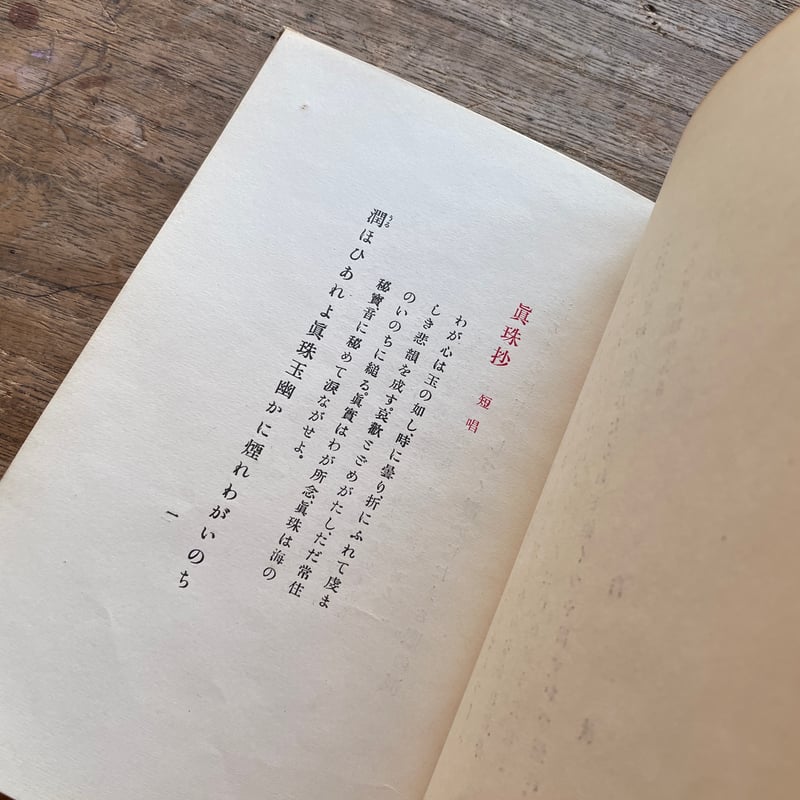 眞珠抄 短唱
わが心は玉の如し、時に曇り、折にふれて虔ま
しき悲韻を成す。哀歡とゞめがたし、ただ常住
のいのちに縋る。眞實はわが所念、眞珠は海の
秘寶、音に秘めて涙ながせよ。
潤ほひあれよ眞珠玉幽かに煙れわがいのち
うる
一